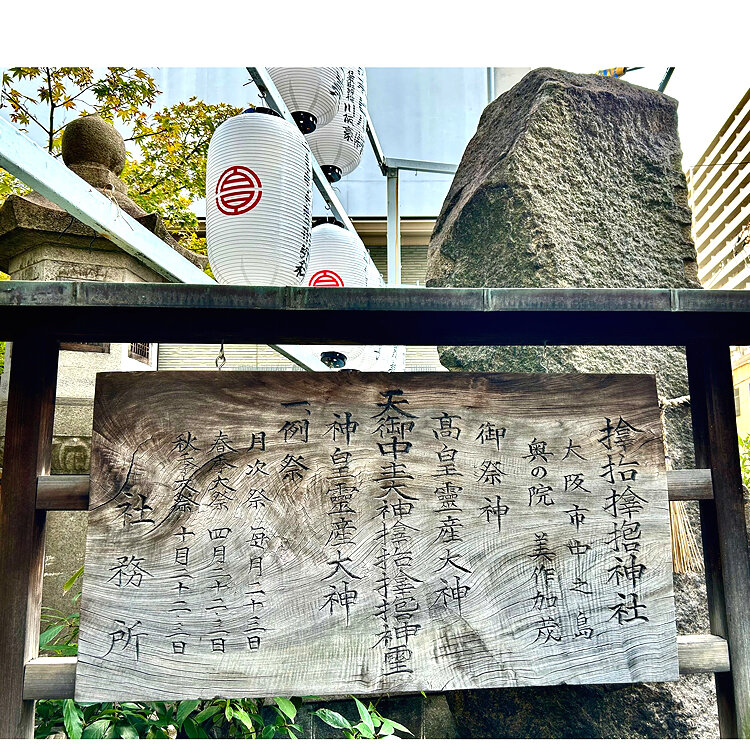 𪮷𫝼𪮷𪮇神社
大阪市中之島
奥の院　美作加茂
御祭神
髙皇靈産大神
天御中主大神𪮷𫝼𪮷𪮇神霊
神皇靈産大神
一、例祭
月次祭　毎月二十三日
春季大祭　四月二十二、三日
秋季大祭　十月二十二、三日
社務所